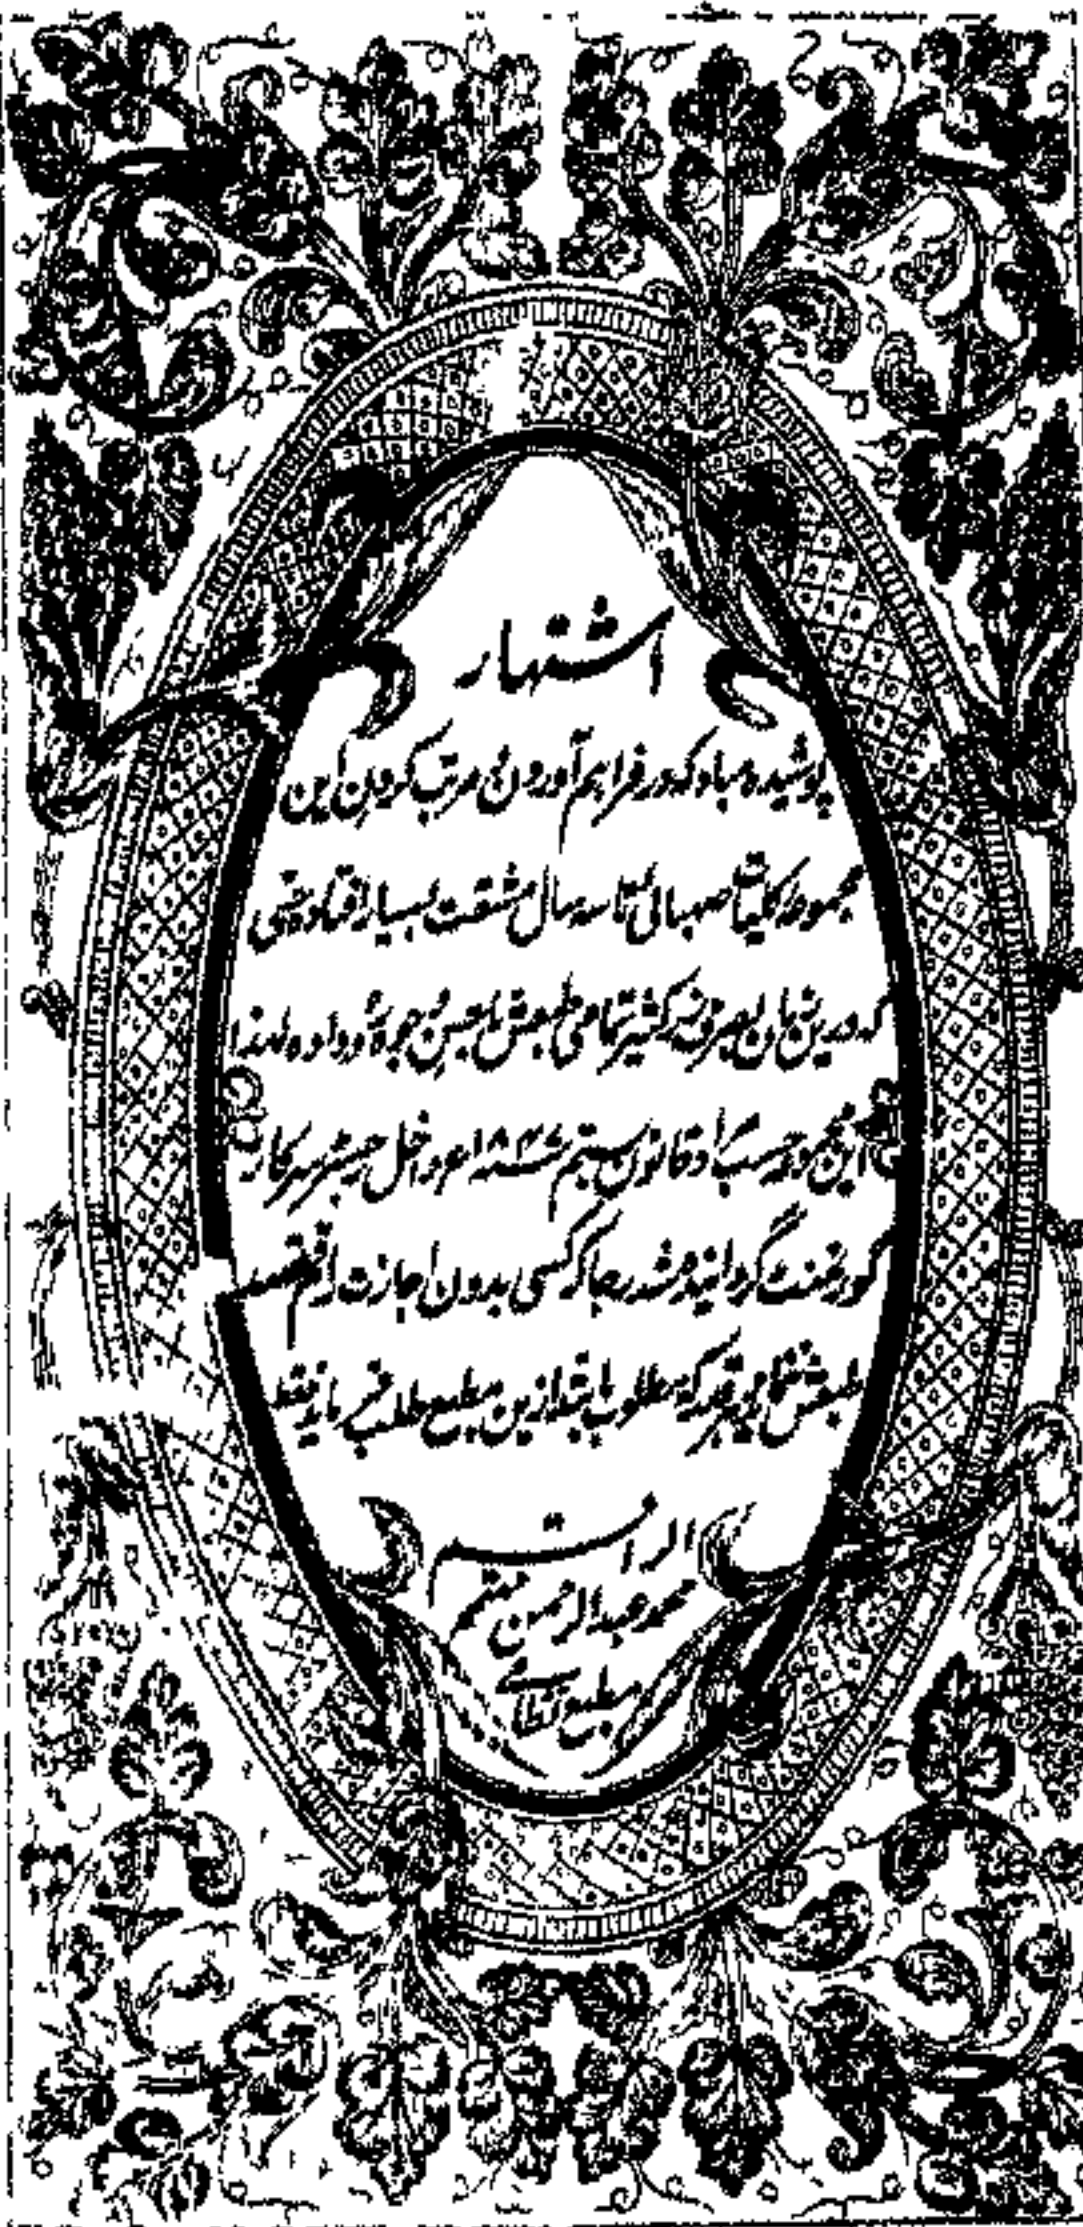 اشتهار
پوشیده مباد که در فراهم آوردن و مرتب کردن این
مجموعه کلیات صهبائی تا سه سال مشقت بسیار افتاده حتی
که درین زمان بصرف زر کثیر تمامی طبعش باحسن وجوه رو داده لهذا
این مجموعه حسب قانون بستم سنه ۱۸۴۷ع داخل رجستر سرکار
گورنمنت گردانیده شد رجا که کسی بدون اجازت راقم قصد
طبعش نفرماید و هر قدر که مطلوب باشد ازین مطبع طلب فرماید فقط
الراقم
محمد عبدالرحمن مهتمم
مطبع نظامی